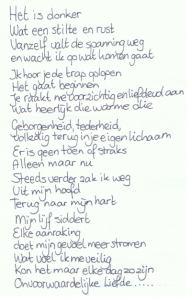 Het is donker
Wat een stilte en rust
Vanzelf valt de spanning weg
en wacht ik op wat komen gaat
Ik hoor je de trap oplopen
Het gaat beginnen
Je raakt me voorzichtig en liefdevol aan
Wat heerlijk die warme olie
Geborgenheid, tederheid,
volledig terug in je eigen lichaam
Er is geen toen of straks
Alleen maar nu
Steeds verder zak ik weg
Uit mijn hoofd
Terug naar mijn hart
Mijn lijf siddert
Elke aanraking
doet mijn gevoel meer stromen
Wat voel ik me veilig
Kon het maar elke dag zo zijn
Onvoorwaardelijke liefde......